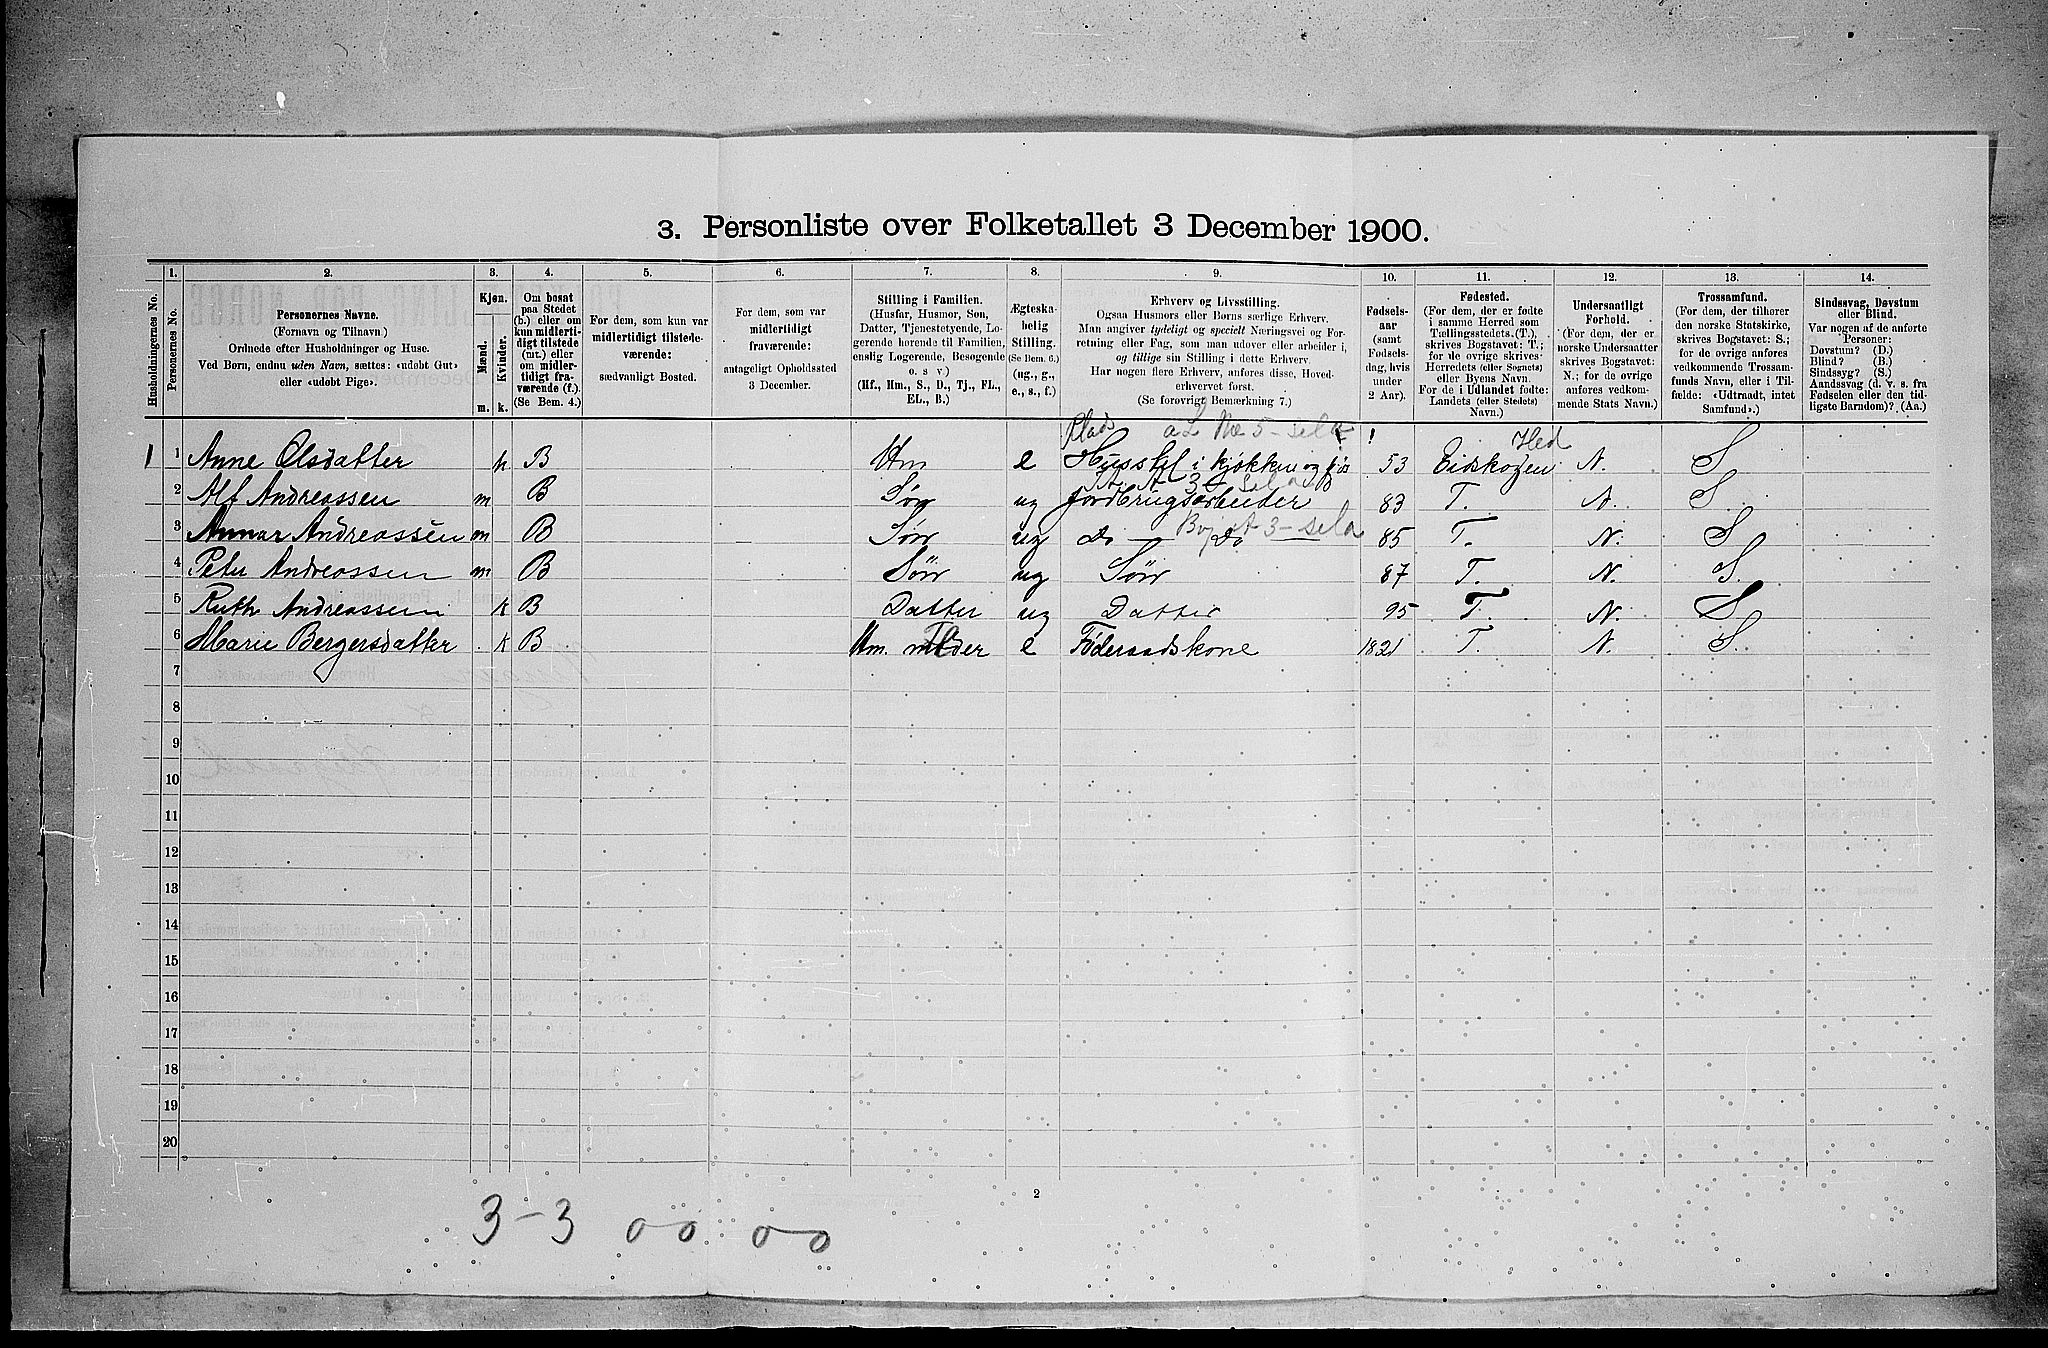 3. Personliste over Folketallet 3 December 1900.
1. 2. 3. 4. 5. 6. 7. 8. 9. 10. 11. 12. 13. 14.
Husholdningernes No.
Personernes No.
Personernes Navne.
(Fornavn og Tilnavn.)
Ordnede efter Husholdninger og Huse.
Ved Børn, endnu uden Navn, sættes: «udøbt Gut»
eller «udøbt Pige».
Kjøn.
Mænd.
Kvinder.
m. k.
Om bosat
paa Stedet
(b.) eller om
kun midlerti-
digt tilstede
(mt.) eller
om midler-
tidigt fra-
værende (f.).
(Se Bem. 4.)
For dem, som kun var
midlertidigt tilstede-
værende:
sædvanligt Bosted.
For dem, som var
midlertidigt
fraværende:
antageligt Opholdssted
3 December.
Stilling i Familien.
(Husfar, Husmor, Søn,
Datter, Tjenestetyende, Lo-
gerende hørende til Familien,
enslig Logerende, Besøgende
o. s. v.)
(Hf., Hm., S., D., Tj., FL.,
EL., B.)
Ægteska-
belig
Stilling.
(Se Bem. 6.)
(ug., g.,
e., s., f.)
Erhverv og Livsstilling.
Ogsaa Husmors eller Børns særlige Erhverv.
Man angiver tydeligt og specielt Næringsvei og For-
retning eller Fag, som man udøver eller arbeider i,
og tillige sin Stilling i dette Erhverv.
Har nogen flere Erhverv, anføres disse, Hoved-
erhvervet først.
(Se forøvrigt Bemærkning 7.)
Fødsels-
aar
(samt
Fødsels-
dag, hvis
under
2 Aar).
Fødested.
(For dem, der er fødte
i samme Herred som
Tællingsstedets (T.),
skrives Bogstavet: T.;
for de øvrige skrives
Herredets (eller Sognets)
eller Byens Navn.
For de i Udlandet fødte:
Landets (eller Stedets)
Navn.)
Undersaatligt
Forhold.
(For dem, der er
norske Undersaatter
skrives Bogstavet:
N.; for de øvrige
anføres vedkom-
mende Stats Navn.)
Trossamfund.
(For dem, der tilhører
den norske Statskirke,
skrives Bogstavet: S.;
for de øvrige anføres
vedkommende Trossam-
funds Navn, eller i Til-
fælde: «Udtraadt, intet
Samfund».)
Sindssvag, Døvstum
eller Blind.
Var nogen af de anførte
Personer:
Døvstum? (D.)
Blind? (B.)
Sindssyg? (S.)
Aandssvag (d. v. s. fra
Fødselen eller den tid-
ligste Barndom)? (Aa.)
Plads 5 - sela
1 1 Anne Olsdatter k B Hm e Husstel i kjøkken og 53 Eidskogen Hed N. S
2 Alf Andreassen m B Søn ug Jordbrugsarbeider 83 T. N. S
3 Annar Andreassen m B Søn ug Do Do 3 - sela 85 T. N. S
4 Peter Andreassen m B Søn ug Søn 87 T. N. S.
5 Ruth Andreassen k B Datter ug Datter 95 T. N. S
6 Marie Bergersdatter k B Hm. Moder e Føderaadskone 1821 T. N. S.
7
8
9
10
11
12
13
14
15
16
17
18
19
20
2
3-3 00 00